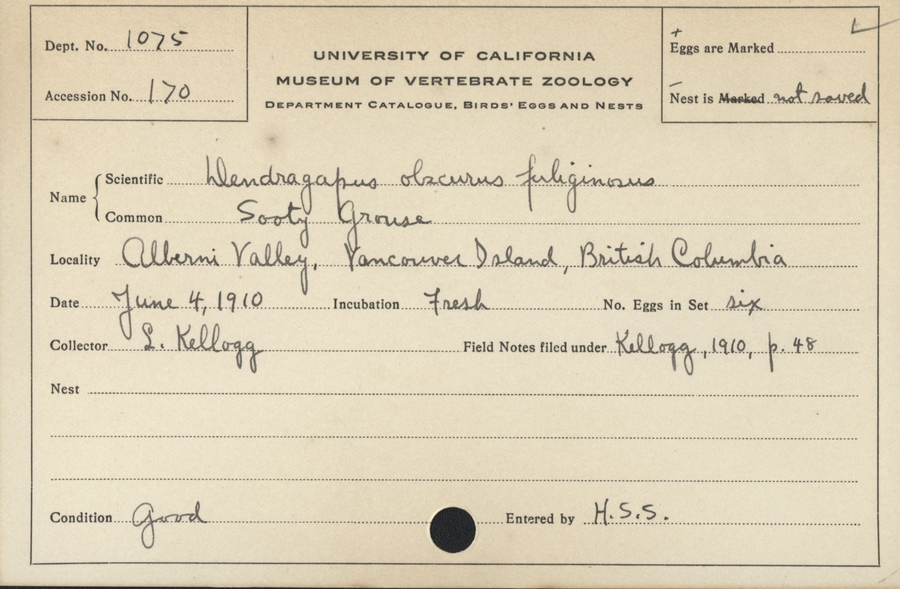 Dept. No. 1075
Accession No. 170
UNIVERSITY OF CALIFORNIA
MUSEUM OF VERTEBRATE ZOOLOGY
DEPARTMENT CATALOGUE, BIRDS' EGGS AND NESTS
+
Eggs are Marked
–
Nest is Marked not saved
Name
Scientific Dendragapus obscurus fuliginosus
Common Sooty Grouse
Locality Alberni Valley, Vancouver Island, British Columbia
Date June 4, 1910 Incubation Fresh No. Eggs in Set six
Collector L. Kellogg Field Notes filed under Kellogg, 1910, p. 48
Nest
Condition Good Entered by H.S.S.